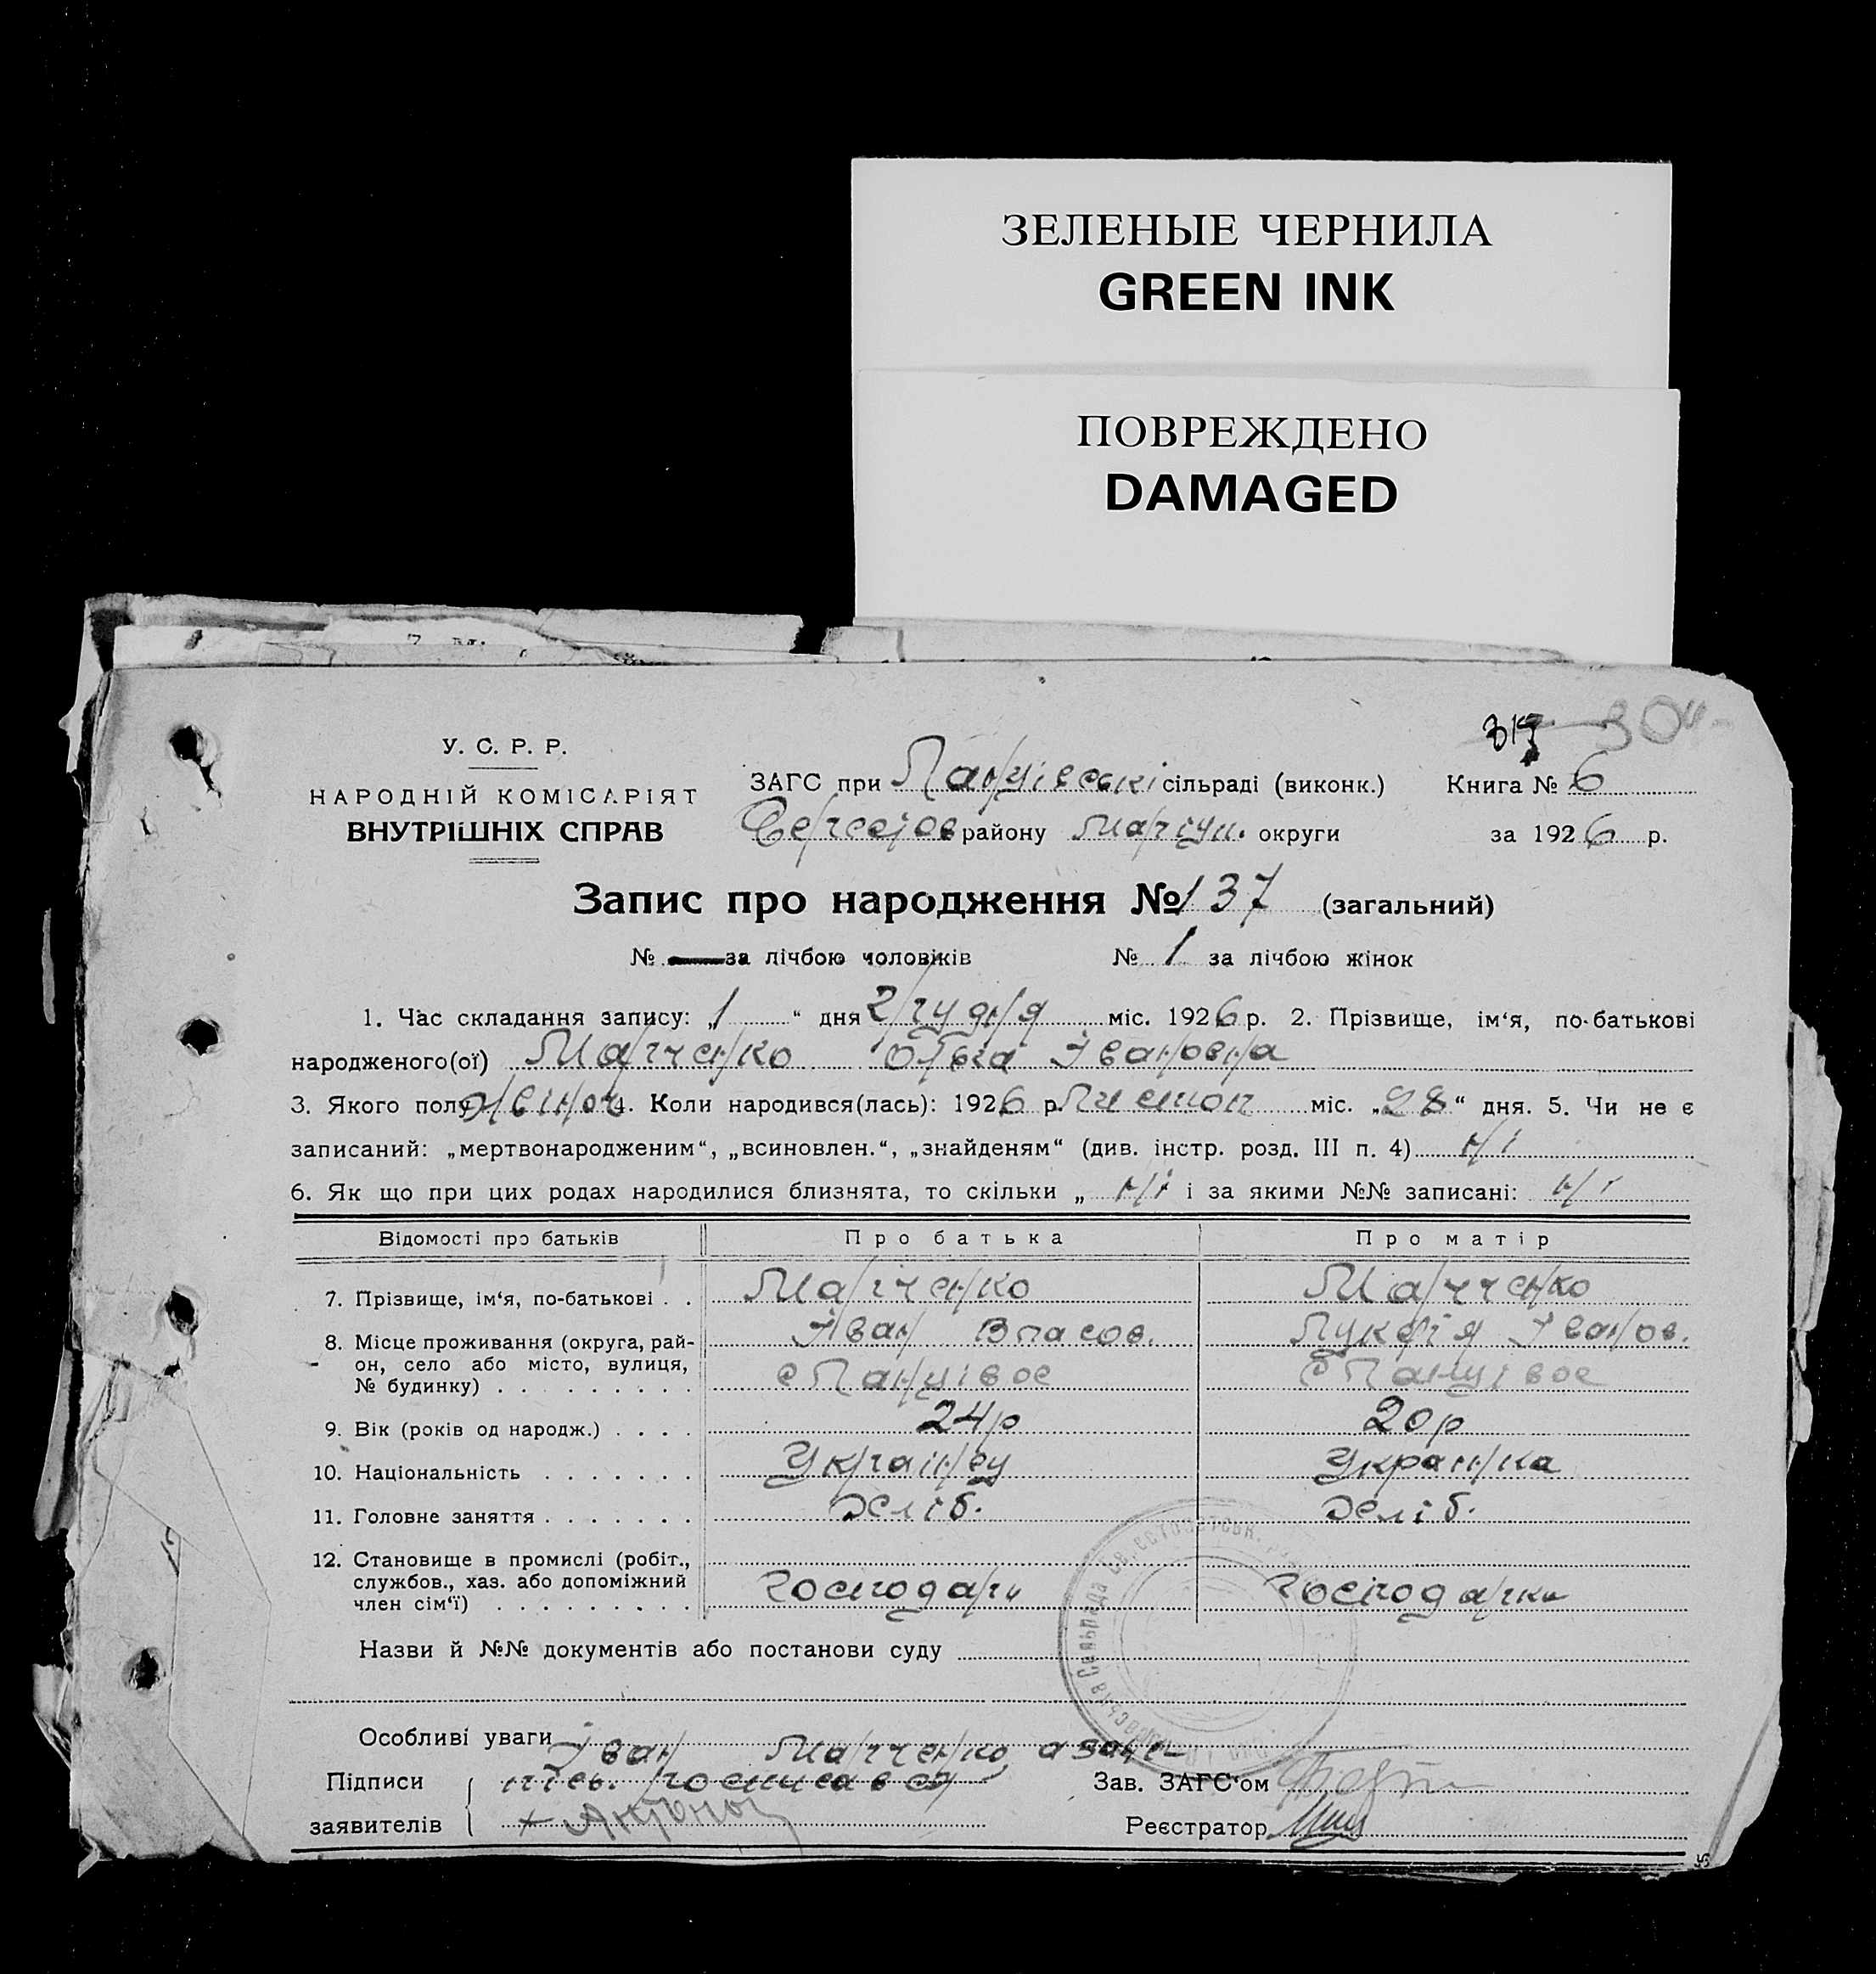 ЗЕЛЕНЫЕ ЧЕРНИЛА
GREEN INK
ПОВРЕЖДЕНО
DAMAGED
У. С. Р. Р.
НАРОДНІЙ КОМІСАРІЯТ
ВНУТРІШНІХ СПРАВ
317 304
ЗАГС при Ланцівські сільраді (виконк.) Книга № 6
району Маріуп. округи за 1926 р.
Запис про народження № 137 (загальний)
№ — за лічбою чоловіків № 1 за лічбою жінок
1. Час складання запису: „1“ дня грудня міс. 1926 р. 2. Прізвище, ім‘я, по-батькові
народженого(ої) Марченко Ольга Івановна
3. Якого полу жіноч 4. Коли народився(лась): 1926 р. Листоп міс. „28“ дня. 5. Чи не є
записаний: „мертвонародженим“, „всиновлен.“, „знайденям“ (див. інстр. розд. III п. 4) ні
6. Як що при цих родах народилися близнята, то скільки „ ні і за якими №№ записані: ні
Відомості про батьків Про батька Про матір
7. Прізвище, ім‘я, по-батькові . . Марченко Марченко
Іван Власов. Лукерія Іванов.
8. Місце проживання (округа, рай-
он, село або місто, вулиця,
№ будинку) . . . . . . . . .
9. Вік (років од народж.) . . . . 24р 20р
10. Національність . . . . . . . Українец Укранка
11. Головне заняття . . . . . . . хліб. хліб.
12. Становище в промислі (робіт.,
службов., хаз. або допоміжний
член сім‘ї) . . . . . . . . . господар господарка
Назви й №№ документів або постанови суду
Особливі уваги
Іван Марченко а за не-
Підписи пісь. росписався Зав. ЗАГС‘ом
заявителів + Реєстратор